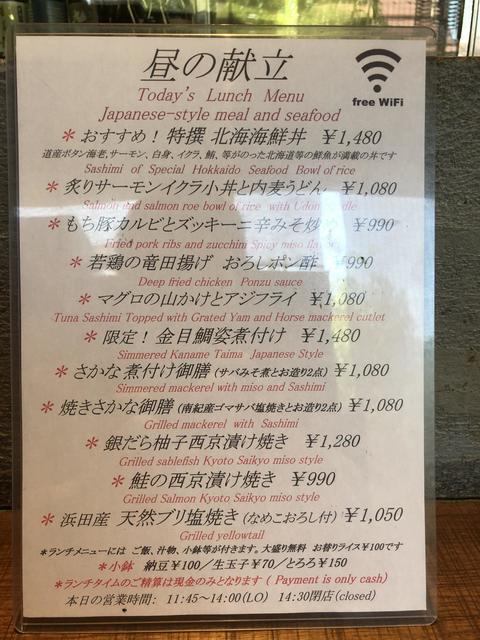 昼の献立
free WiFi
Today's Lunch Menu
Japanese-style meal and seafood
* おすすめ！特撰 北海海鮮丼 ￥1,480
道産ボタン海老,サーモン、白身、イクラ、鮪、等がのった北海道等の鮮魚が満載の丼です
Sashimi of Special Hokkaido Seafood Bowl of rice
* 炙りサーモンイクラ小丼と内麦うどん ￥1,080
Salmon and salmon roe bowl of rice with Udon
* もち豚カルビとズッキーニ辛みそ炒 ￥990
Fried pork ribs and zucchini Spicy miso flavor
* 若鶏の竜田揚げ おろしポン酢 ￥990
Deep fried chicken Ponzu sauce
* マグロの山かけとアジフライ ￥1,080
Tuna Sashimi Topped with Grated Yam and Horse mackerel cutlet
* 限定！金目鯛姿煮付け ￥1,480
Simmered Kaname Taima Japanese Style
* さかな煮付け御膳 (サバみそ煮とお造り2点) ￥1,080
Simmered mackerel with miso and Sashimi
* 焼きさかな御膳 (南紀産ゴマサバ塩焼きとお造り2点) ￥1,080
Grilled mackerel with Sashimi
* 銀だら柚子西京漬け焼き ￥1,280
Grilled sablefish Kyoto Saikyo miso style
* 鮭の西京漬け焼き ￥990
Grilled Salmon Kyoto Saikyo miso style
* 浜田産 天然ブリ塩焼き (なめこおろし付) ￥1,050
Grilled yellowtail
*ランチメニューには ご飯、汁物、小鉢等が付きます。大盛り無料 お替りライス￥100です
*小鉢 納豆￥100／生玉子￥70／とろろ￥150
*ランチタイムのご精算は現金のみとなります ( Payment is only cash)
本日の営業時間: 11:45～14:00(LO) 14:30閉店(closed)